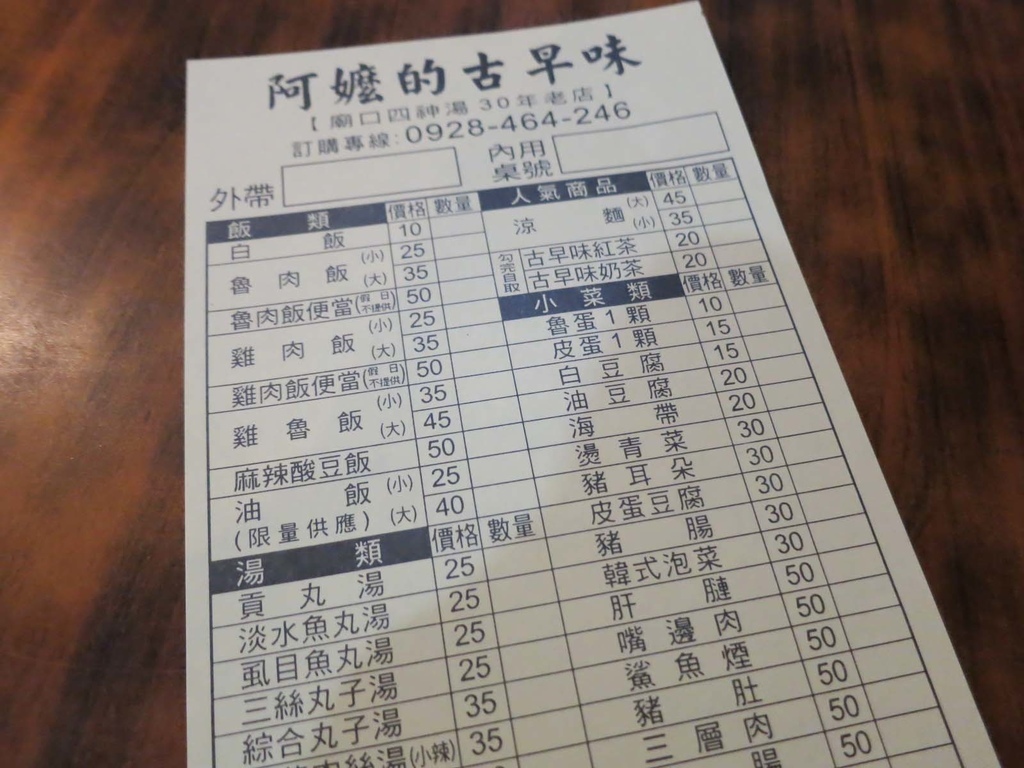 阿嬤的古早味
【廟口四神湯 30年老店】
訂購專線:0928-464-246
外帶
內用桌號
飯類 價格 數量
白飯 10
魯肉飯 (小) 25
(大) 35
魯肉飯便當(假日不提供) 50
雞肉飯 (小) 25
(大) 35
雞肉飯便當(假日不提供) 50
雞魯飯 (小) 35
(大) 45
麻辣酸豆飯 50
油飯 (小) 25
(限量供應) (大) 40
湯類 價格 數量
貢丸湯 25
淡水魚丸湯 25
虱目魚丸湯 25
三絲丸子湯 25
綜合丸子湯 35
肉絲湯(小辣) 35
人氣商品 價格 數量
涼麵 (大) 45
(小) 35
勾完自取
古早味紅茶 20
古早味奶茶 20
小菜類 價格 數量
魯蛋1顆 10
皮蛋1顆 15
白豆腐 15
油豆腐 20
海帶 20
燙青菜 30
豬耳朵 30
皮蛋豆腐 30
豬腸 30
韓式泡菜 30
肝腱 50
嘴邊肉 50
鯊魚煙 50
豬肚 50
三層肉 50
腸 50